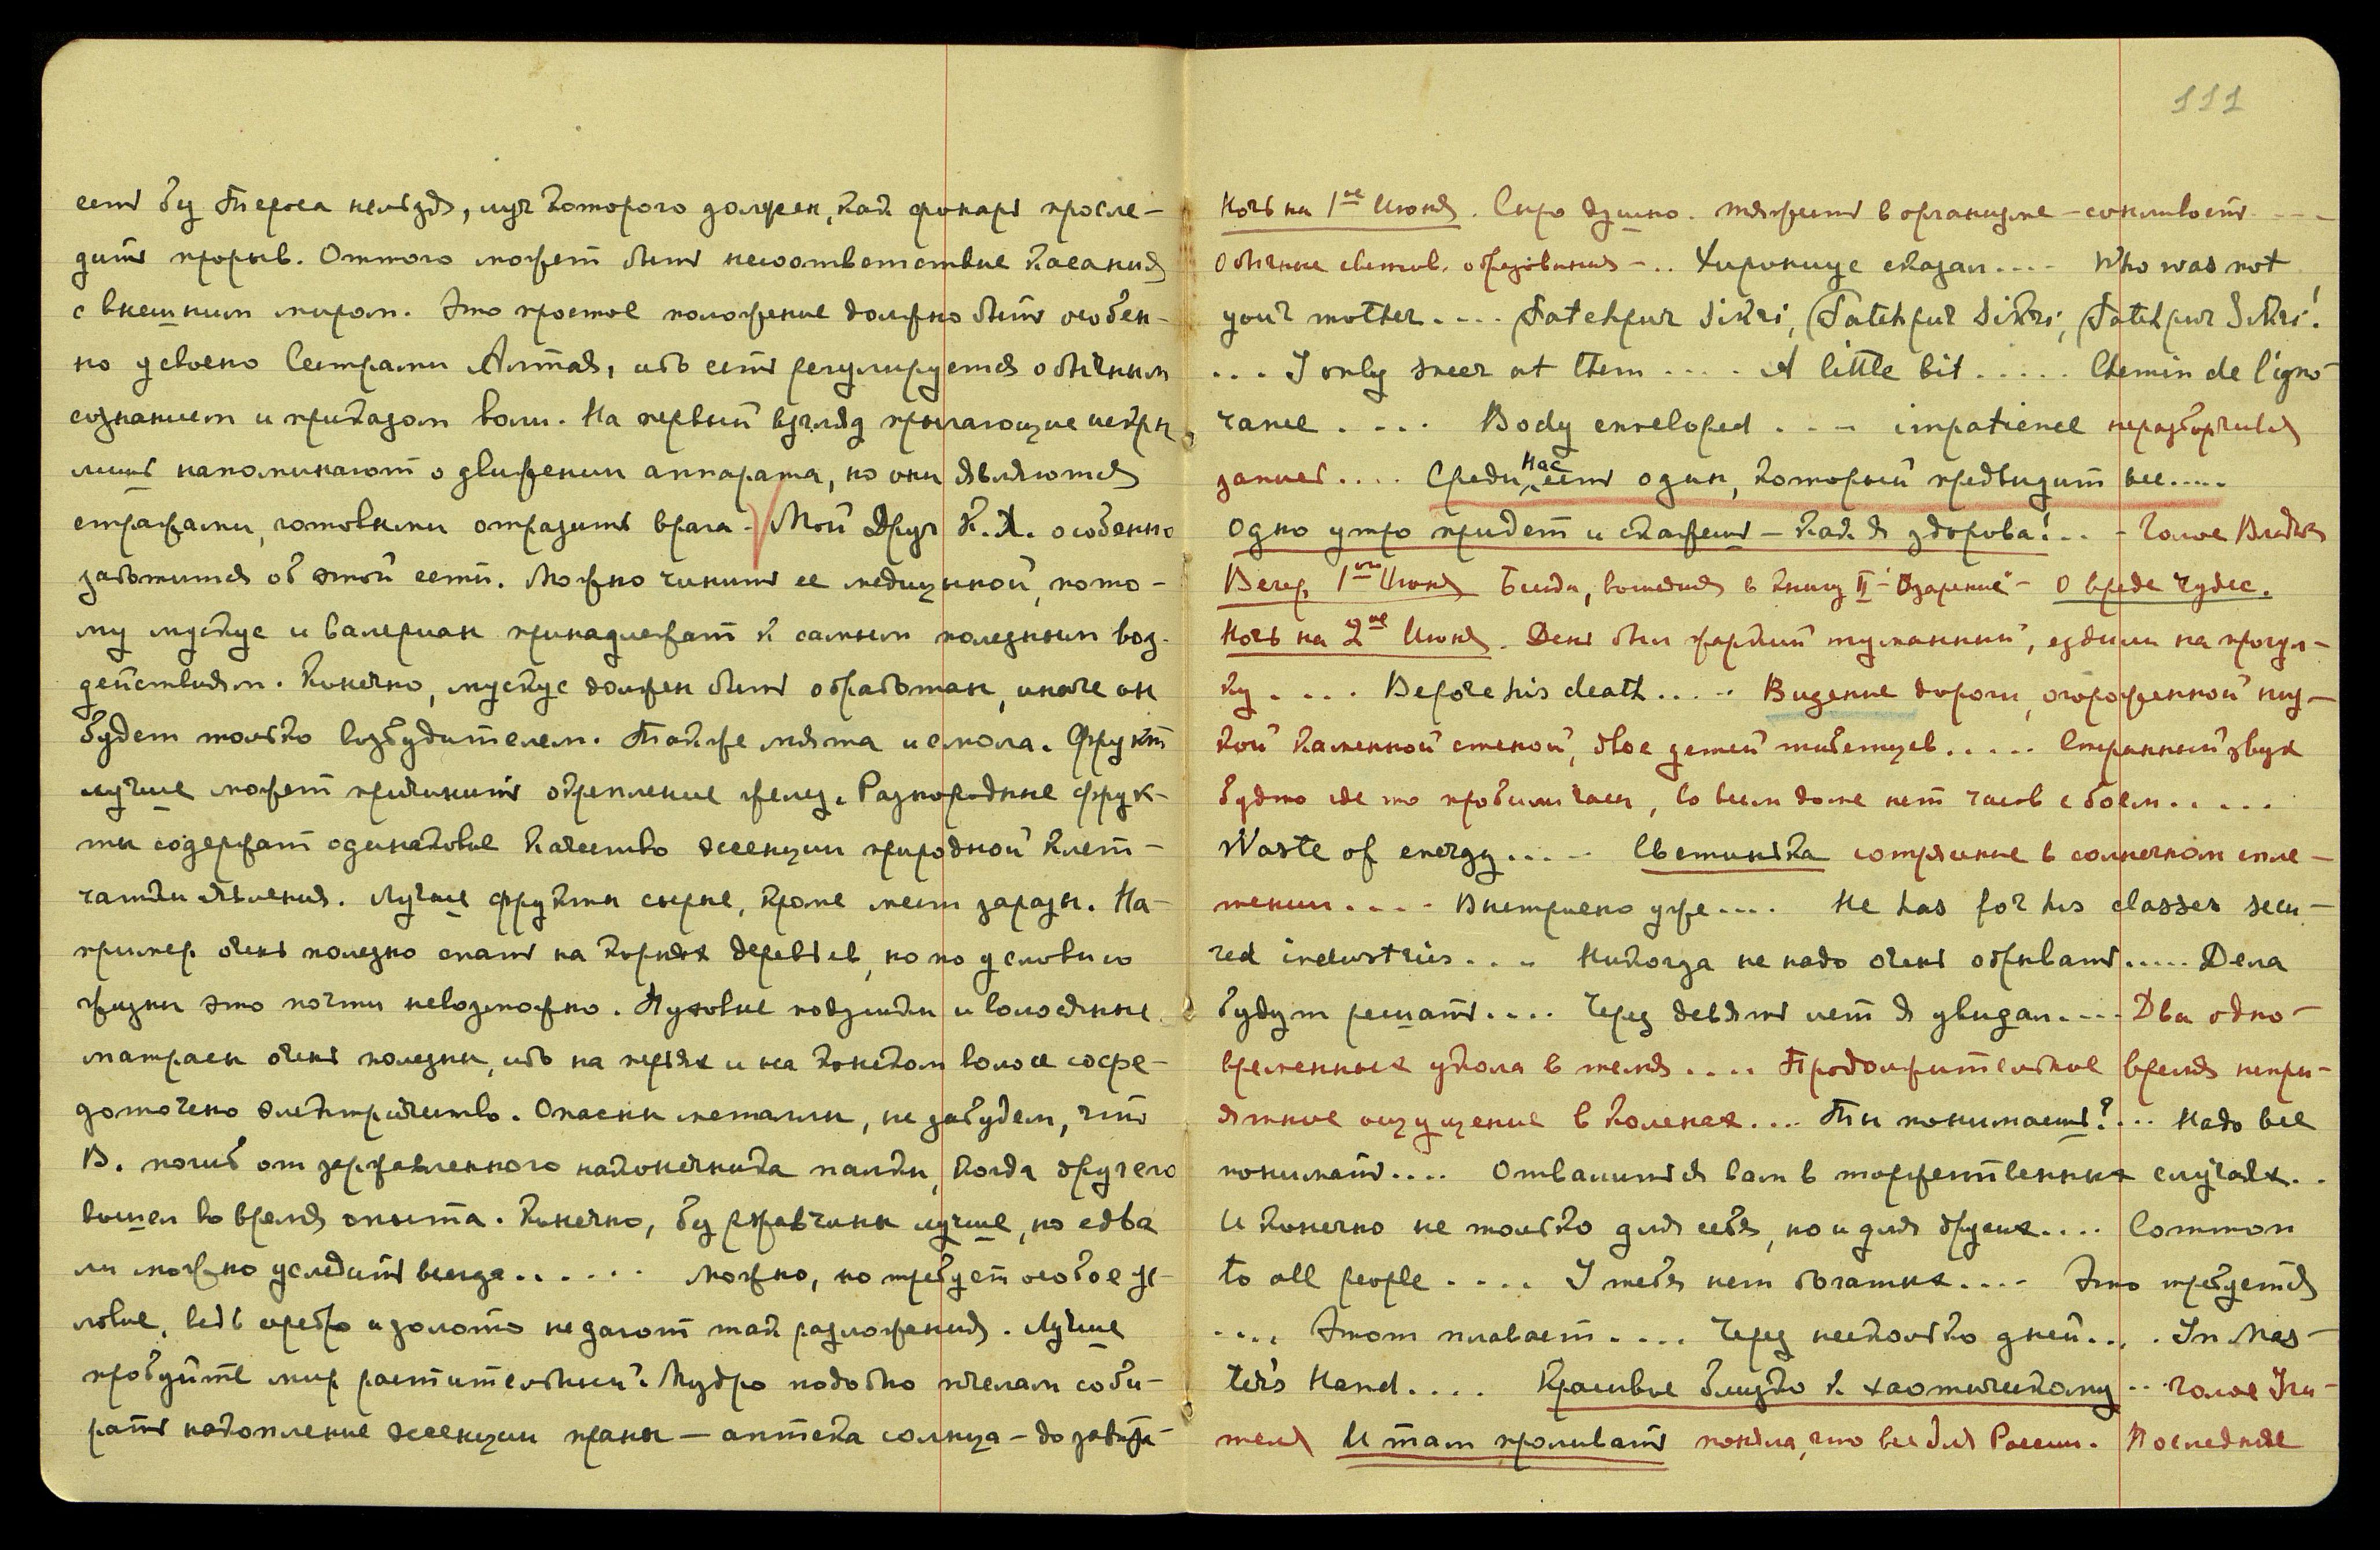 сеть без Тероса нельзя, луч которого должен, как фонарь просле-
дить прорыв. Оттого может быть несоответствие касания
с внешним миром. Это простое положение должно быть особен-
но усвоено Сестрами Алтая, ибо сеть регулируется обычным
сознанием и приказом воли. На первый взгляд прыгающие искры
лишь напоминают о движении аппарата, но они являются
стражами, готовыми отразить врага. Мой Друг К.Х. особенно
заботится об этой сети. Можно чинить ее медициной, пото-
му мускус и валериан принадлежат к самым полезным воз-
действиям. Конечно, мускус должен быть обработан, иначе он
будет только возбудителем. Также мята и смола. Фрукт
лучше может причинить окрепление желез. Разнородные фрук-
ты содержат одинаковые качество эссенции природной клет-
чатки явления. Лучше фрукты сырые, кроме мест заразы. На-
пример очень полезно спать на корнях деревьев, но по условию
жизни это почти невозможно. Пуховые подушки и волосяные
матрасы очень полезны, ибо на перьях и на конском волосе сосре-
доточено электричество. Опасны металлы, не забудем, что
В. погиб от заржавленного наконечника палки, когда друг его
вошел во время опыта. Конечно, без ржавчины лучше, но едва
ли можно уследить всегда...... Можно, но требует особое ус-
ловие, ведь серебро и золото не дают так разложения. Лучше
пробуйте мир растительный. Мудро подобно пчелам соби-
рать накопление эссенции праны — аптека солнца — до
111
Ночь на 1ое Июня. Сыро душно. тяжесть в организме — сонливость - - -
Обычные светов. образования -.. Хирониус сказал.... Who was not
your mother.... Fatehpur Sikri, Fatehpur Sikri, Fatehpur Sikri!
... I only sneer at them.... A little bit..... Chemin de l'igno-
rance.... Body enveloped... impatience неразборчивая
запись.... Среди Нас есть один, который предвидит все.....
Одно утро придет и скажешь — как я здорова!... - Голос Владыки
Вечер 1го Июня Беседа, вошедшая в книгу II - "Озарение" - О вреде чудес.
Ночь на 2ое Июня. День был жаркий туманный, ездили на прогул-
ку.... Before his death..... Видение дороги, огороженной низ-
кой каменной стеной, двое детей тибетцев..... Странный звук
будто где то пробили часы, во всем доме нет часов с боем.....
Waste of energy..... Светинька сотрясение в солнечном спле-
тении.... Выстроено уже.... He has for his classes secu-
red industries.... Никогда не надо очень обрывать..... Дела
будут решать.... Через девять лет я увидал.... Два одно-
временных укола в темя.... Продолжительное время непри-
ятное ощущение в коленах.... Ты понимаешь?... Надо все
понимать.... Отвалиться вам в торжественных случаях..
И конечно не только для себя, но и для других.... Common
to all people.... У тебя нет богатых.... Это требуется
.... Этот плавает.... Через несколько дней.... In Mas-
ter's Hand.... Красивое близко к хаотическому.. - голос Учи-
теля И там проливать поняла, что все для России. Последняя